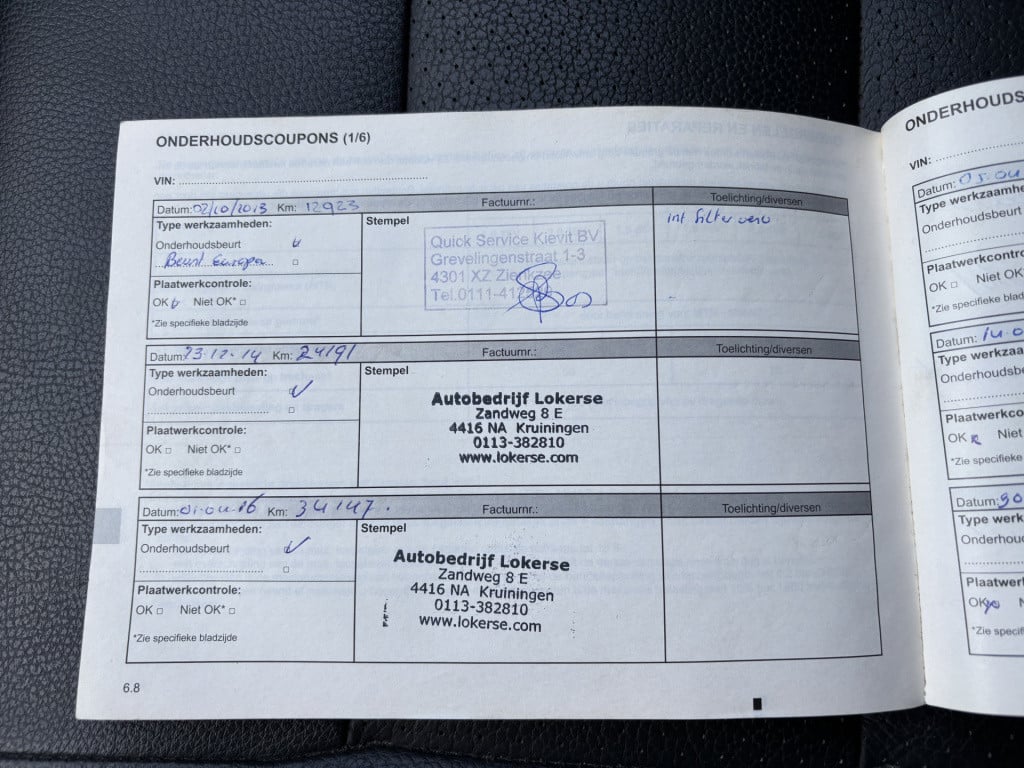 ONDERHOUDSCOUPONS (1/6)
VIN:
Datum: 02/10/2013 Km: 12923 Factuurnr.: Toelichting/diversen
Type werkzaamheden:
Onderhoudsbeurt
Beurt Europa
Plaatwerkcontrole:
OK Niet OK*
*Zie specifieke bladzijde
Stempel
Quick Service Kievit BV
Grevelingenstraat 1-3
4301 XZ
Tel.0111-41
int filter
Datum: 23-12-14 Km: 24191 Factuurnr.: Toelichting/diversen
Type werkzaamheden:
Onderhoudsbeurt
Plaatwerkcontrole:
OK Niet OK*
*Zie specifieke bladzijde
Stempel
Autobedrijf Lokerse
Zandweg 8 E
4416 NA Kruiningen
0113-382810
www.lokerse.com
Datum: 01-04-16 Km: 34147. Factuurnr.: Toelichting/diversen
Type werkzaamheden:
Onderhoudsbeurt
Plaatwerkcontrole:
OK Niet OK*
*Zie specifieke bladzijde
Stempel
Autobedrijf Lokerse
Zandweg 8 E
4416 NA Kruiningen
0113-382810
www.lokerse.com
6.8
ONDERHOUDS
VIN:
Datum: 05.04
Type werkzaamhe
Onderhoudsbeurt
Plaatwerkcontro
OK Niet OK
*Zie specifieke bladz
Datum: 14.0
Type werkzaa
Onderhoudsbe
Plaatwerkco
OK Niet
*Zie specifieke
Datum: 30
Type werk
Onderhou
Plaatwer
OK N
*Zie specifi